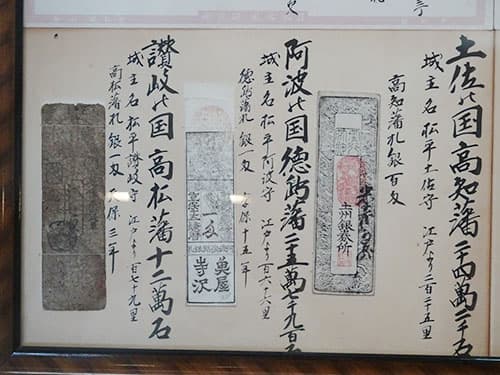 土佐の国高知藩二十四萬二千石
城主名松平土佐守 江戸より二百二十五里
高知藩札銀百匁
土州銀券所
阿波の国徳島藩二十五萬七千九百石
城主名松平阿波守 江戸より百六十六里
徳島藩札銀一匁 享保十五年
一匁
萬屋
寺沢
讃岐の国高松藩十二萬石
城主名松平讃岐守 江戸より百七十九里
高松藩札銀一匁 享保三年